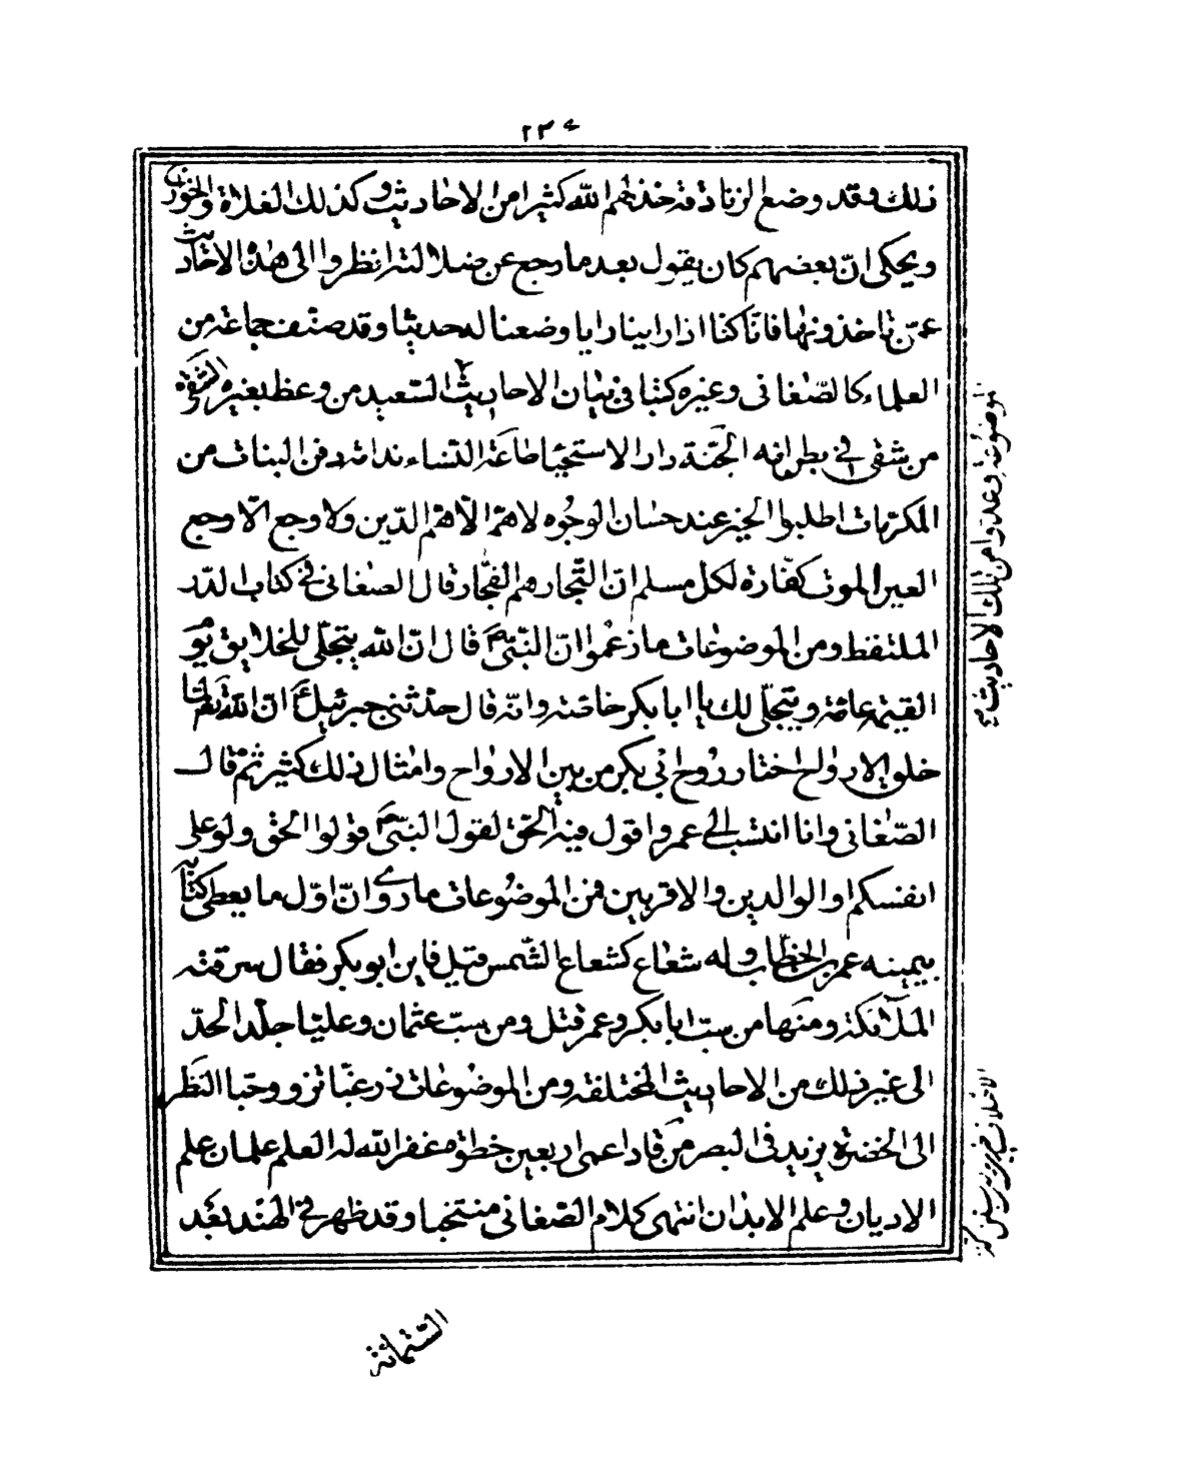 ذلك وقد وضع الزنادقة خذلهم الله كثيرا من الاحاديث وكذلك الغلاة والخوارج
ويحكى ان بعضهم كان يقول بعد ما رجع عن ضلالته انظروا الى هذه الاحاديث
عمّن تاخذونها فانّا كنا اذا راينا رايا وضعنا له حديثا وقد صنف جماعة من
العلماء كالصّغانى وغيره كتبا فى بيان الاحاديث السعيد من وعظ بغيره الشقى
من شقى فى بطن امه الجنّة دار الاسخيا طاعة النّساء ندامة دفن البنات من
المكرمات اطلبوا الخير عند حسان الوجوه لا همّ الّا همّ الدّين ولا وجع الّا وجع
العين الموت كفّارة لكل مسلم انّ التّجار هم الفجّار قال الصغانى فى كتاب الدّر
الملتقط ومن الموضوعات ما زعموا انّ النّبىّ قال انّ الله يتجلّى للخلايق يوم
القيمة عامّة ويتجلّى لك يا ابا بكر خاصّة وانّه قال حدّثنى جبرئيل ان الله تعالى لما
خلق الارواح اختار روح ابى بكر من بين الارواح وامثال ذلك كثير ثم قال
الصّغانى وانا انتسب الى عمر واقول فيه الحق لقول النّبىّ قولوا الحق ولو على
انفسكم او الوالدين والاقربين فمن الموضوعات ما روى انّ اوّل ما يعطى كتابه
بيمينه عمر بن الخطّاب وله شعاع كشعاع الشّمس قيل فاين ابو بكر فقال سرقته
الملآئكة ومنها من سبّ ابا بكر وعمر قتل ومن سبّ عثمان وعليّا جلّد الحدّ
الى غير ذلك من الاحاديث المختلقة ومن الموضوعات زر غبّا تزدد حبّا النّظر
الى الخضرة يزيد فى البصر من قاد اعمى اربعين خطوة غفر الله له العلم علمان علم
الاديان وعلم الابدان انتهى كلام الصّغانى منتخبا وقد ظهر فى الهند بعد
الموضوعة وعدوا من تلك الاحاديث
الستمائة